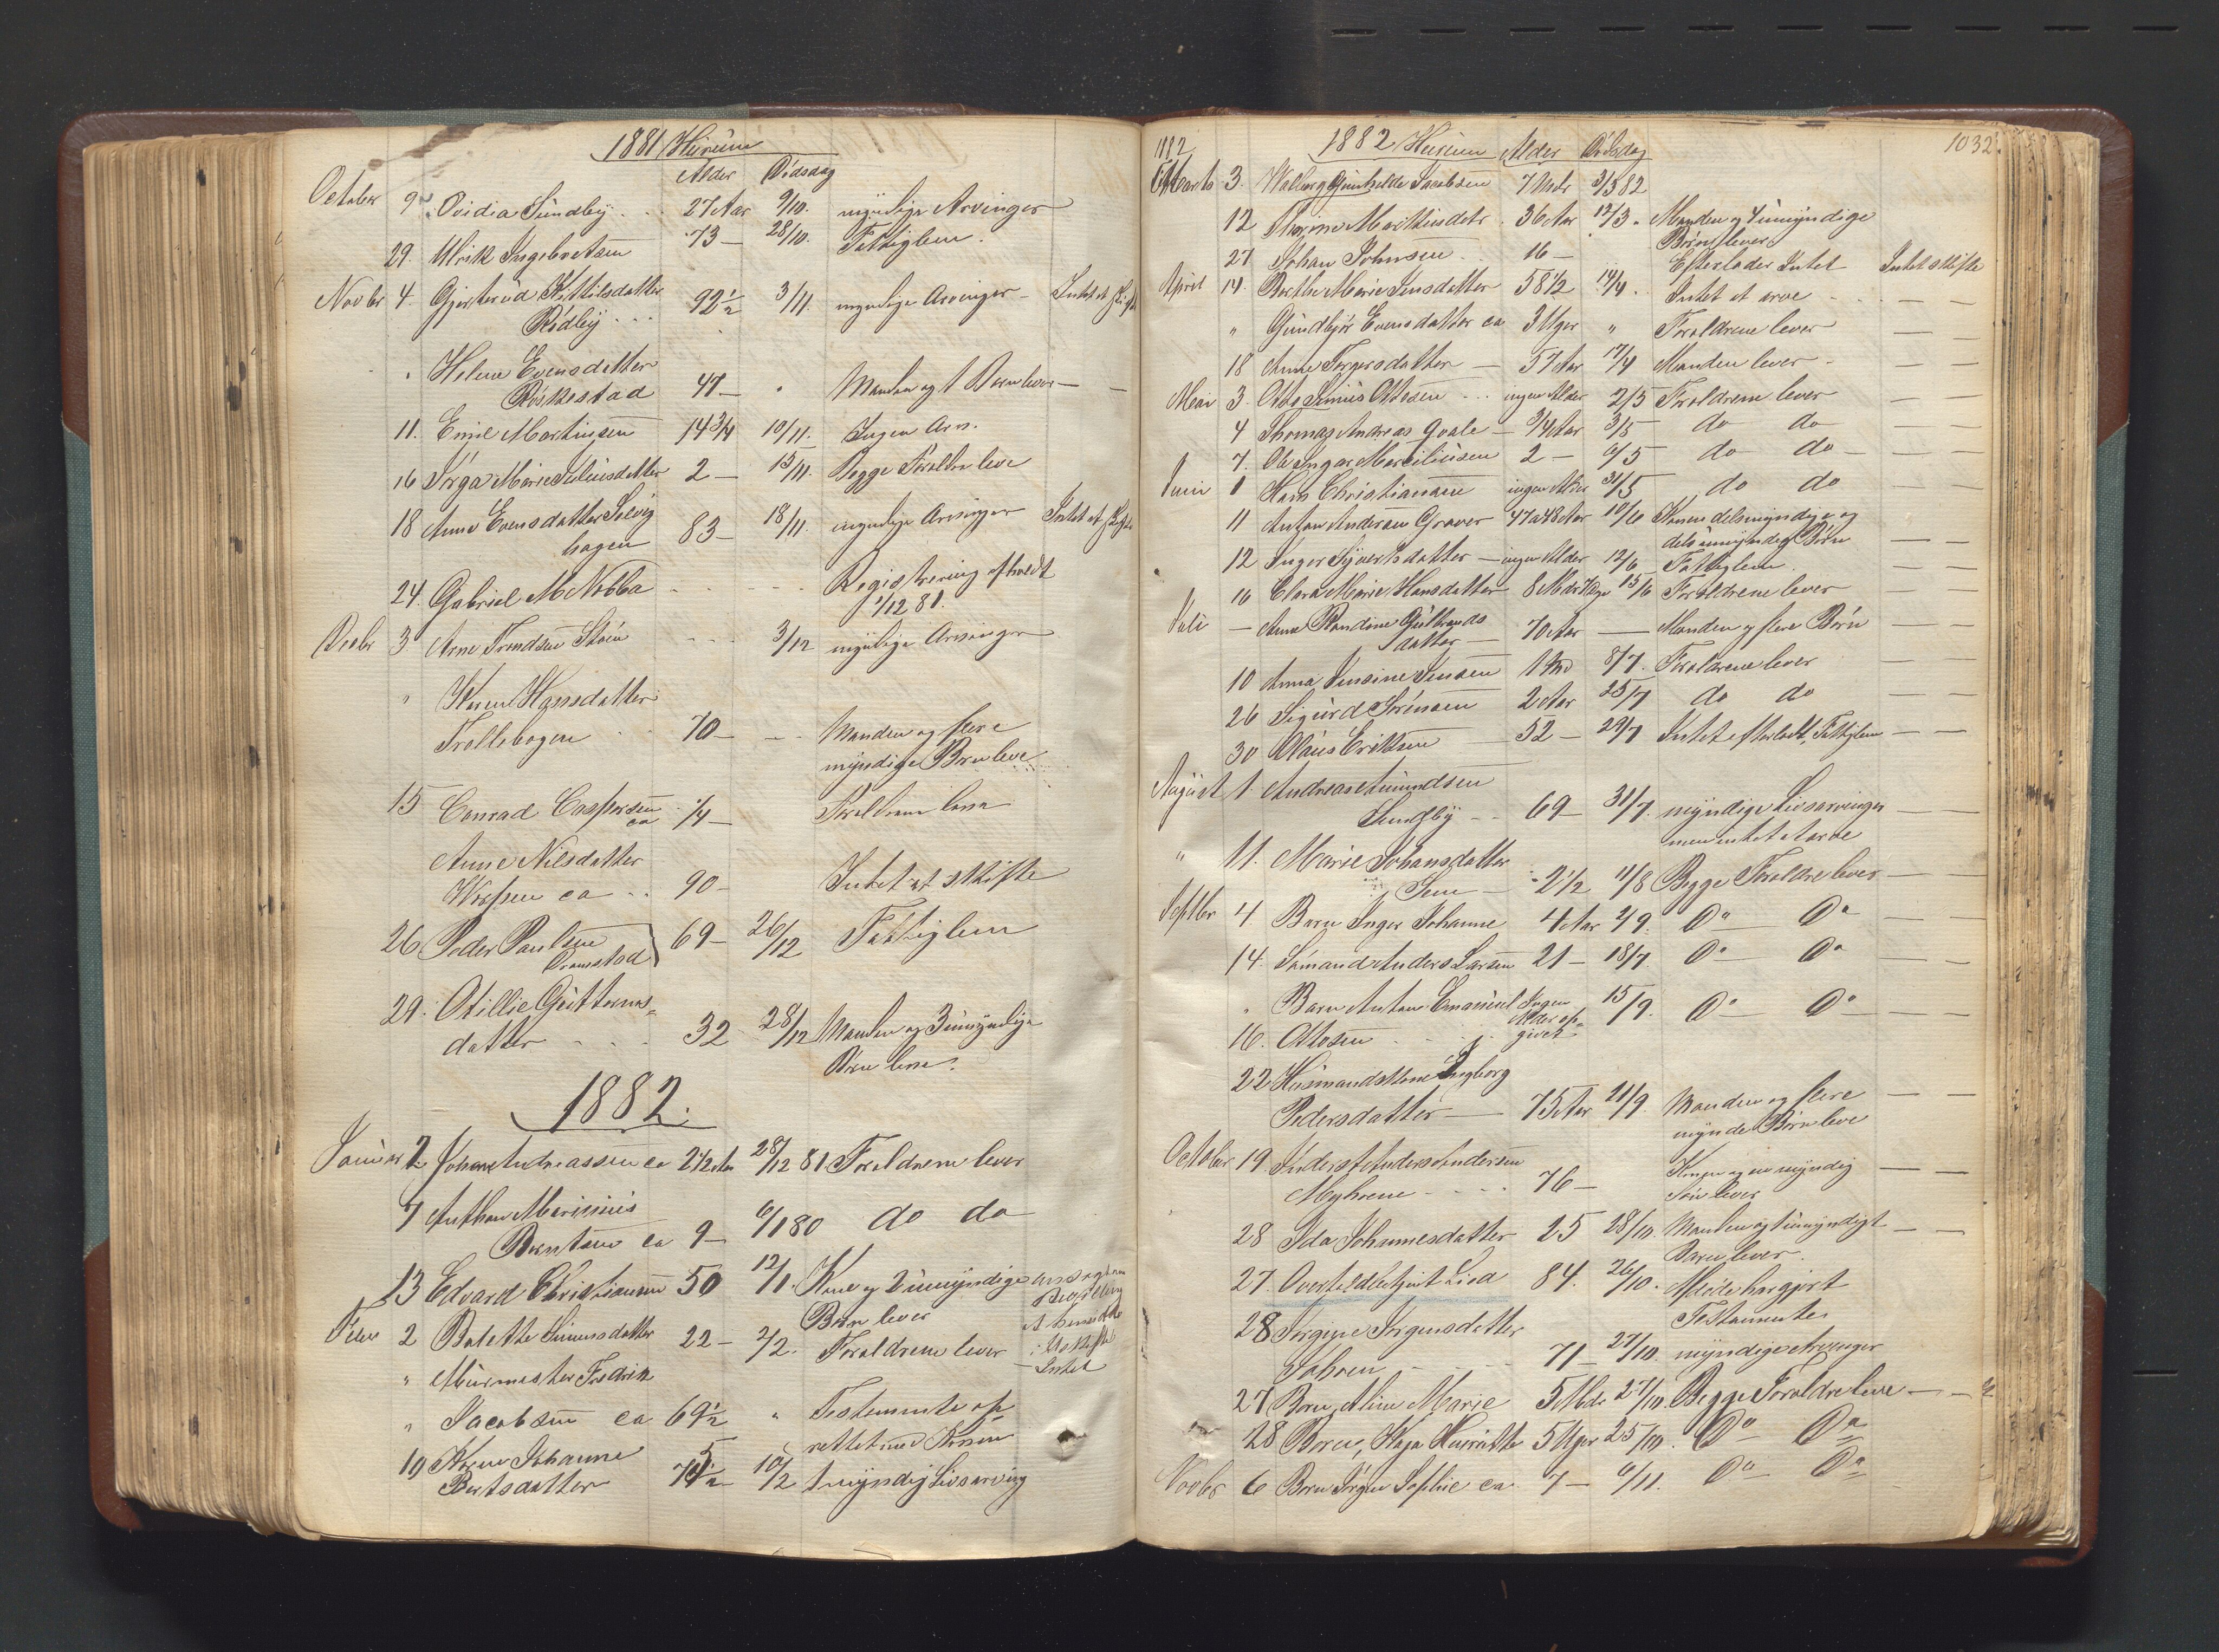 1881 Hurum
Alder Dødsdag
October 9 Ovidia Sundby 27 Aar 9/10. myndige Arvinger
29. Ulrik Ingebretsen 73 — 28/10. Fattiglem.
Novbr 4. Kittilsdatter 92 1/2 3/11. myndige Arvinger — Intet at skifte
Rødby
" Helene Evensdatter
Röskestad 47 — " Manden og 1 Barn lever — —
11. Emil Martinsen 14 3/4 10/11. Ingen Arv.
16 Marie Juliusdatter 2 — 15/11. Begge Forældre leve
18 Anne Evensdatter Solvig
hagen 83 — 18/11. myndige Arvinger Intet at skifte
24. Gabriel M Nobba Registrering afholdt
1/12 81.
Decbr 3 Arne Trondsen 3/12 myndige Arvinger
" Karen Hansdatter
Trollebogen 70 — Manden og flere
myndige Børn leve
15 Conrad Caspersen
ca 1/4 — Forældrene leve
Anne Nilsdatter
ca 90 — Intet at skifte
26 Peder Paulsen 69 — 26/12 Fattiglem
29. Otillie Guttorms-
datter 32 28/12 Manden og 3 umyndige
Børn leve.
1882.
Januar 2 Johan Andreassen ca 2 1/2 Aar 28/12 81 Forældrene lever
7 Anthon Marinius
Berntsen ca 9 — 6/1 80 do do
13 Edvard Christiansen 50 12/1. Kone og 2 umyndige
Børn lever
Febr 2 Balette Simensdatter 22 — 2/2. Forældrene lever
Intet
" Muurmester Fredrik
" Jacobsen ca 69 1/2 " Testamente op
rettet med Konen
10 Karen Johanne
Berntsdatter 10/2 1 myndig Livsarving
1882 1882 Hurum Alder Dødsdag 1032.
Marts 3. Valborg Gunhilde Jacobsen 7 Mdr 3/3 82
12 Thorine Mathisdatr. 36 Aar 12/3. Manden og 4 umyndige
Børn lever
27 Johan Johnsen 16 — Efterlader Intet Intet at skifte
April 14 Berthe Marie Jensdatter 58 1/2 14/4. Intet at arve — —
" Gundbjør Evensdatter ca 3 Uger " Forældrene lever — —
18 Anne Torgersdatter — 57 Aar 17/4 Manden lever — —
Mai 3. Otto Ottosen ingen Alder 2/5 Forældrene lever — —
4 Thomas Andreas Qvale — 3/4 Aar 3/5 do do — —
7. Marciliusen 2 — 6/5 do do — —
Juni 1 Hans Christiansen ingen Alder 31/5 do do — —
11 Anton Andersen Graver 47 a 48 Aar 10/6 Konen dels myndige og
dels umyndige Børn — —
12 Inger Syvertsdatter — ingen Alder 12/6 Fattiglem. — —
16 Clara Marie Hansdatter 8 Mdr 15/6 Forældrene lever — —
Juli — Anne Randine Gulbrands
datter — 70 Aar — Manden og flere Børn — —
10 Anna Jensine Jensen 1 Md 8/7. Forældrene lever — —
26 Sigurd Sørensen 2 Aar 25/7 do do — —
30 Olaus Eriksen 52 — 29/7 Intet efterladt, Fattiglem — —
August 1. Andreas Amundsen
Sundby 69 — 31/7. myndige Livsarvinger — —
men intet at arve
" 11. Marie Johansdatter
2 1/2 11/8 Begge Forældre lever — —
Septbr 4. Barn Inger Johanne 4 Aar 2/9. Do Do — —
14. Sømand Anders Larsen 21 — 18/7. Do Do — —
" Barn Anton Emanuel Ingen 15/9. Do Do — —
16. Ottosen Alder op-
givet
22 Huusmandskone Ingborg
Pedersdatter — 75 Aar 21/9. Manden og flere — —
mynde Børn leve
October 19. Inderst Anders Andersen
Myhrene 76 — Konen og en myndig — —
Søn lever
28 Ida Johannesdatter 25 28/10. Manden og 1 umyndigt — —
Barn lever.
27. Overtoldbetjent Lied 84. 26/10. Afdøde har gjort
Testamente
28 Jørgine Jørgensdatter
71 — 27/10. myndige Arvinger
27 Barn, Aline Marie 5 Mdr 27/10. Begge Forældre leve — —
28 Barn, Kaja Henriette 5 Uger 25/10. Do Do
Novbr 6 Barn Jørgen Sophie ca 7 — 6/11. Do Do